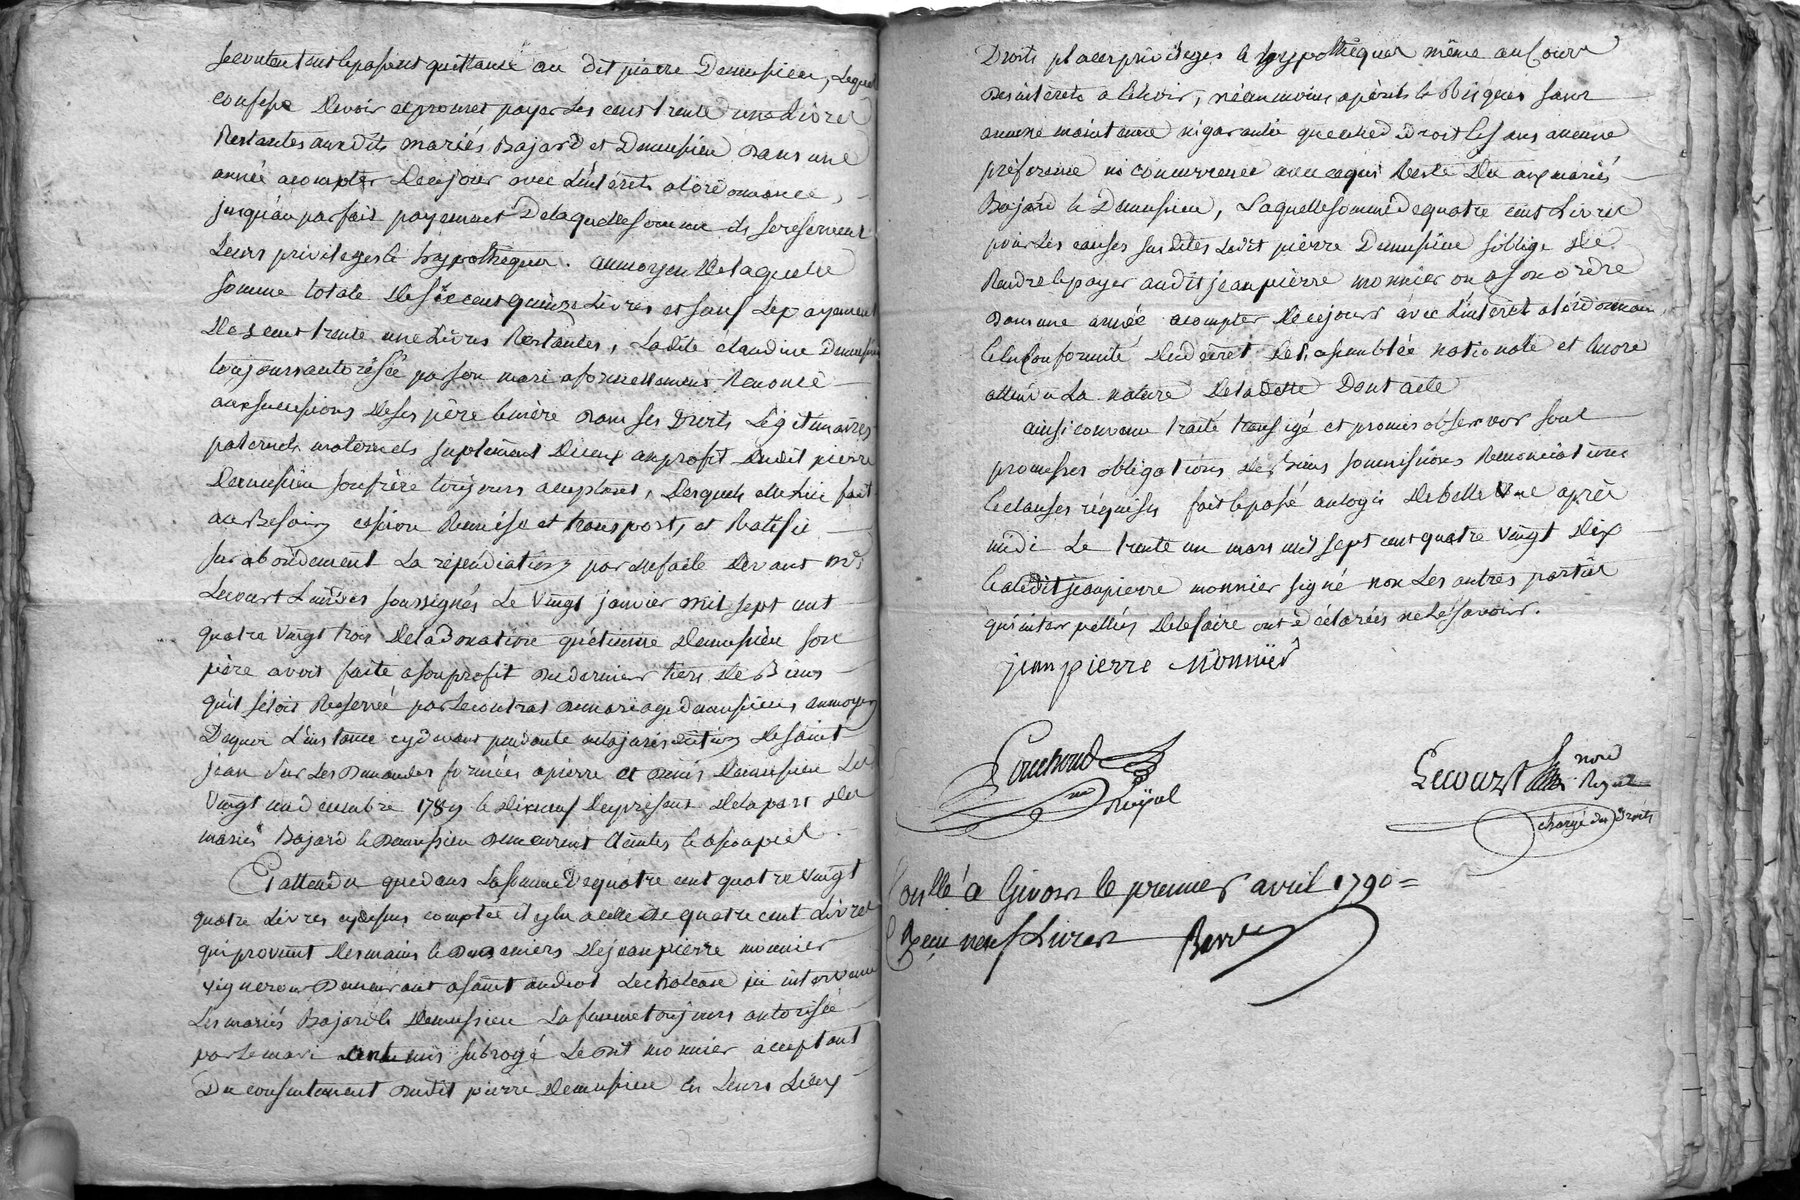 se contentent et passent quittance au dit pierre Demussieu, Lequel
confesse devoir et promet payer Les cent trente une Livres
Restantes auxdits mariés Bajard et Demussieu dans une
année acompter de ce jour avec L'intérêt a lordonnance,
jusqu'au parfait payement de laquelle somme ils se reservent
Leurs privileges & hypotheques. au moyen de laquelle
somme totale de six cent quinze Livres et sauf Le payement
des cent trente une Livres Restantes, Ladite claudine Demussieu
toujours autorisée par son mari a formellement Renoncé
aux successions de ses père & mère dans ses Droits Légitimaires
paternels maternels suplement d'iceux au profit dudit pierre
Demussieu son frère toujours acceptant, desquels elle lui fait
au Besoin cession Remise et transport, et Ratifie
surabondement La répudiation par elle faite devant me
Lecourt L'un des soussignés Le vingt janvier mil sept cent
quatre vingt trois de la Donation qu'étienne demussieu son
père avoit faite a son profit du dernier tiers de Biens
qu'il s'étoit Reservé par le contrat de mariage demussieu, au moyen
De quoi L'instance cydevant pendante en la jurisdiction de saint
jean sur Les demandes formées a pierre et denis Demussieu Les
vingt un decembre 1789 & dix neuf du présent de la part des
mariés Bajard & Demussieu demeurent éteintes & assoupies.
Et attendu que dans La somme de quatre cent quatre vingt
quatre Livres cydessus comptée il y en a celle de quatre cent Livres
qui provient des mains & deniers de jean pierre monnier
vigneron demeurant a saint andeol Le chateau ici intervenu
Les mariés Bajard & Demussieu La femme toujours autorisée
par le mari ont mis subrogé Le dit monnier acceptant
Du consentement dudit pierre Demussieu en Leurs Lieux
Droits places privileges & hypotheques même au cours
des intérêts a échoir, néanmoins a périls & risques sans
aucune maintenue ni garantie quelconque Droit Les sans aucune
préference ni concurrence avec ce qui Reste dû aux mariés
Bajard & Demussieu, Laquelle somme de quatre cent Livres
pour Les causes susdites Ledit pierre Demussieu s'oblige de
Rendre & payer audit jean pierre monnier ou a son ordre
dans une année acompter de ce jour avec L'intérêt a lordonnance,
& en conformité du décret de L'assemblée nationale et encore
attendu La nature de la dette Dont acte
ainsi convenu traité transigé et promis observer sous
promesses obligations de Biens soumissions Renonciations
& clauses réquises fait & passé au logis de belle vue après
midi Le trente un mars mil sept cent quatre vingt dix
& a Ledit jean pierre monnier signé non Les autres parties
qui interpellés de le faire ont déclarés ne Le savoir.
jean pierre monnier
Royal
Lecourt
nore
Royal
chargé des Droits
Con llé a Givors le premier avril 1790 =
Reçu neuf Livres